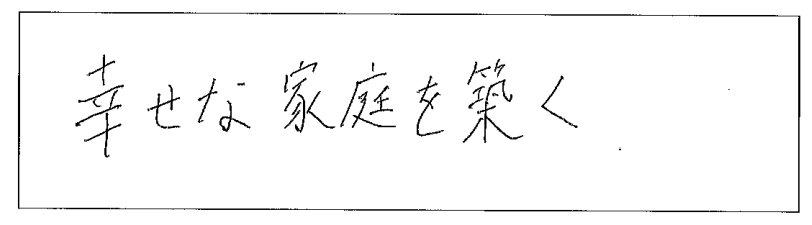 幸せな家庭を築く